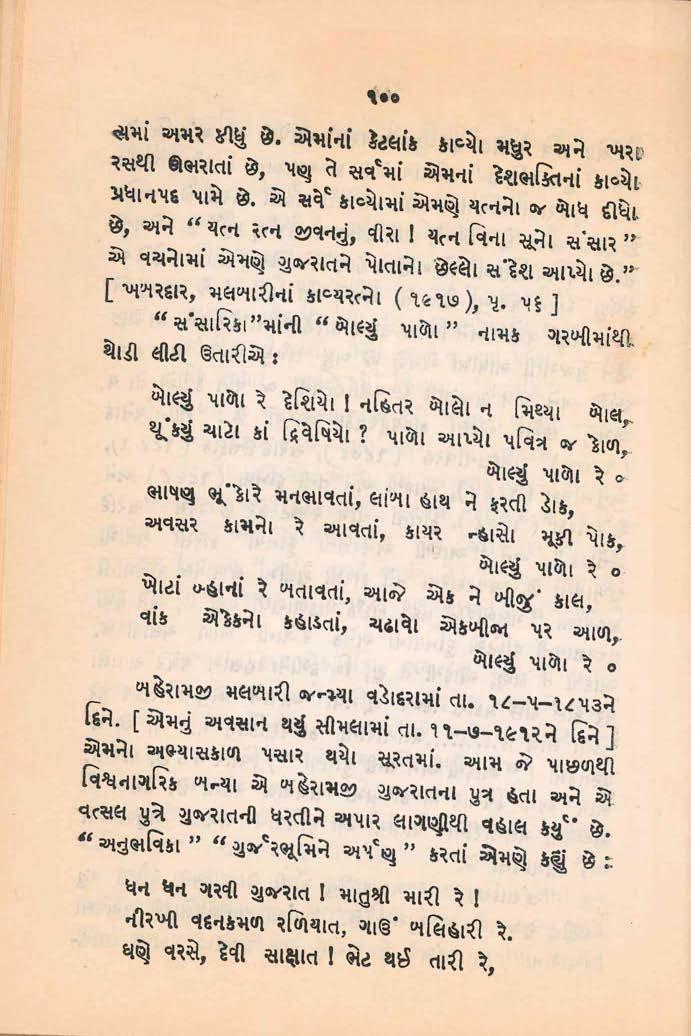 ૧૦૦
સમાં અમર કીધું છે. એમાંનાં કેટલાંક કાવ્યો મધુર અને ખરા
રસથી ઊભરાતાં છે, પણ તે સર્વમાં એમનાં દેશભક્તિનાં કાવ્યો
પ્રધાનપદ પામે છે. એ સર્વે કાવ્યોમાં એમણે યત્નનો જ બોધ દીધો
છે, અને “ યત્ન રત્ન જીવનનું, વીરા ! યત્ન વિના સૂનો સંસાર ”
એ વચનોમાં એમણે ગુજરાતને પોતાનો છેલ્લો સંદેશ આપ્યો છે.”
[ ખબરદાર, મલબારીનાં કાવ્યરત્નો ( ૧૯૧૭ ), પૃ. ૫૬ ]
“ સંસારિકા”માંની “ બોલ્યું પાળો ” નામક ગરબીમાંથી
થોડી લીટી ઉતારીએ :
બોલ્યું પાળો રે દેશિયો ! નહિતર બોલો ન મિથ્યા બોલ,
થૂંકર્યું ચાટો કાં દ્વિવેષિયો ? પાળો આપ્યો પવિત્ર જ કોળ,
બોલ્યું પાળો રે ૦
ભાષણ ભૂંકારે મનભાવતાં, લાંબા હાથ ને ફરતી ડોક,
અવસર કામનો રે આવતાં, કાયર ન્હાસો મૂકી પોક,
બોલ્યું પાળો રે ૦
ખોટાં બ્હાનાં રે બતાવતાં, આજે એક ને બીજું કાલ,
વાંક એકેકનો કહાડતાં, ચઢાવો એકબીજા પર આળ,
બોલ્યું પાળો રે ૦
બહેરામજી મલબારી જન્મ્યા વડોદરામાં તા. ૧૮-૫-૧૮૫૩ને
દિને. [ એમનું અવસાન થયું સીમલામાં તા. ૧૧-૭-૧૯૧૨ને દિને ]
એમનો અભ્યાસકાળ પસાર થયો સૂરતમાં. આમ જે પાછળથી
વિશ્વનાગરિક બન્યા એ બહેરામજી ગુજરાતના પુત્ર હતા અને એ
વત્સલ પુત્રે ગુજરાતની ધરતીને અપાર લાગણીથી વહાલ કર્યું છે.
“ અનુભવિકા ” “ ગુર્જરભૂમિને અર્પણ ” કરતાં એમણે કહ્યું છે :
ધન ધન ગરવી ગુજરાત ! માતુશ્રી મારી રે !
નીરખી વદનકમળ રળિયાત, ગાઉં બલિહારી રે.
ઘણે વરસે, દેવી સાક્ષાત ! ભેટ થઈ તારી રે,